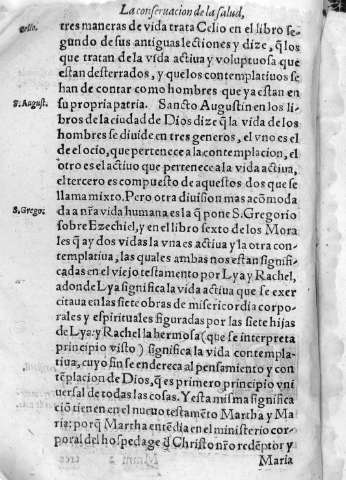 La conseruacion de la salud,
Celio.
tres maneras de vida trata Celio en el libro se-
gundo de sus antiguas lectiones y dize, q̃ los
que tratan de la vida actiua y voluptuosa que
estan desterrados, y que los contemplatiuos se
han de contar como hombres que ya estan en
S. August.
su propria patria. Sancto Augustin en los li-
bros de la ciudad de Dios dize q̃ la vida de los
hombres se diuide en tres generos, el vno es el
de el ocio, que pertenece a la contemplacion, el
otro es el actiuo que pertenece a la vida actiua,
el tercero es compuesto de aquestos dos que se
llama mixto. Pero otra diuision mas acõmoda
S. Grego.
da a nr̃a vida humana es la q̃ pone S. Gregorio
sobre Ezechiel, y en el libro sexto de los Mora
les q̃ ay dos vidas la vna es actiua y la otra con-
templatiua, las quales ambas nos estan signifi-
cadas en el viejo testamento por Lya y Rachel,
adonde Lya significa la vida actiua que se exer
citaua en las siete obras de misericordia corpo-
rales y espirituales figuradas por las siete hijas
de Lya: y Rachel la hermosa (que se interpreta
principio visto) significa la vida contempla-
tiua, cuyo fin se endereca al pensamiento y con
tẽplacion de Dios, q̃ es primero principio vni
uersal de todas las cosas. Y esta misma significa
ciõ tienen en el nueuo testamẽto Martha y Ma
ria; porq̃ Martha entẽdia en el ministerio cor-
poral del hospedage d̃ Christo nr̃o redẽptor y
Maria